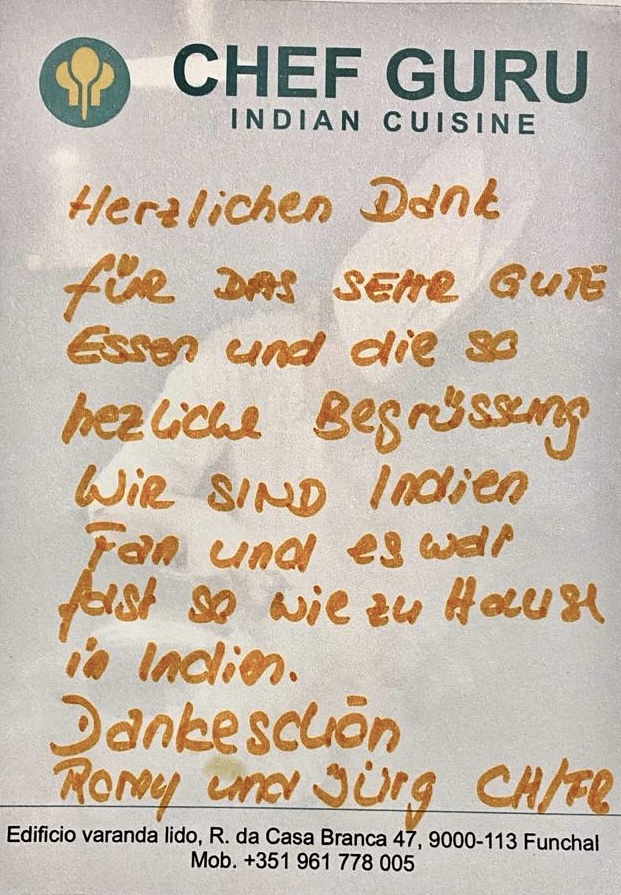 CHEF GURU
INDIAN CUISINE
Herzlichen Dank
für DAS SEHR GUTE
Essen und die so
hezliche Begrüssung
Wir SIND Indien
Fan und es war
fast so wie zu Hause
in Indien.
Dankeschön
Romy und Jürg CH/FR
Edificio varanda lido, R. da Casa Branca 47, 9000-113 Funchal
Mob. +351 961 778 005